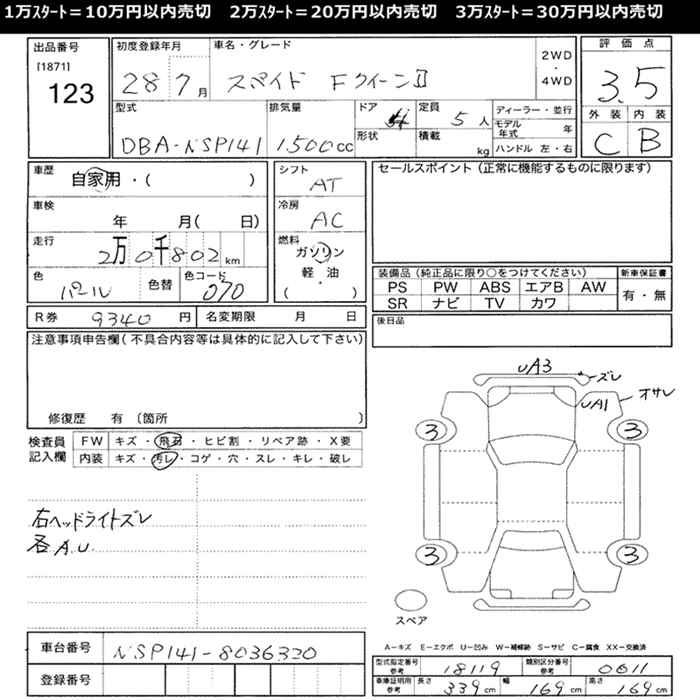 1万ｽﾀｰﾄ＝10万円以内売切　2万ｽﾀｰﾄ＝20万円以内売切　3万ｽﾀｰﾄ＝30万円以内売切
出品番号
[1871]
123
初度登録年月
28 7月
車名・グレード
スペイド Fクイーン II
2WD
・
4WD
評価点
3.5
外装 内装
C B
型式
DBA-NSP141
排気量
1500cc
ドア
形状
定員
5人
積載
kg
ディーラー・並行
モデル年式 年
ハンドル 左・右
車歴
自家用・( )
車検
年 月( 日)
走行
2万0千802km
色
パール
色替
色コード
070
シフト
AT
冷房
AC
燃料
ガソリン
軽・油
( )
セールスポイント（正常に機能するものに限ります）
装備品（純正品に限り○をつけてください）
PS PW ABS エアB AW
SR ナビ TV カワ
新車保証書
有・無
後日品
R券 9340円
名変期限 月 日
注意事項申告欄（不具合内容等は具体的に記入して下さい）
修復歴 有（箇所 ）
検査員
記入欄
FW キズ・飛石・ヒビ割・リペア跡・X要
内装 キズ・汚レ・コゲ・穴・スレ・キレ・破レ
右ヘッドライトズレ
各A.U.
UA3
ズレ
UA1
オサレ
3 3
3 3
スペア
車台番号 NSP141-8036320
登録番号
A－キズ E－エクボ U－凹み W－補修跡 S－サビ C－腐食 XX－交換済
型式指定番号
参考
18119
類別区分番号
参考
0611
車庫証明用
参考
長さ 339cm 幅 169cm 高さ 169cm